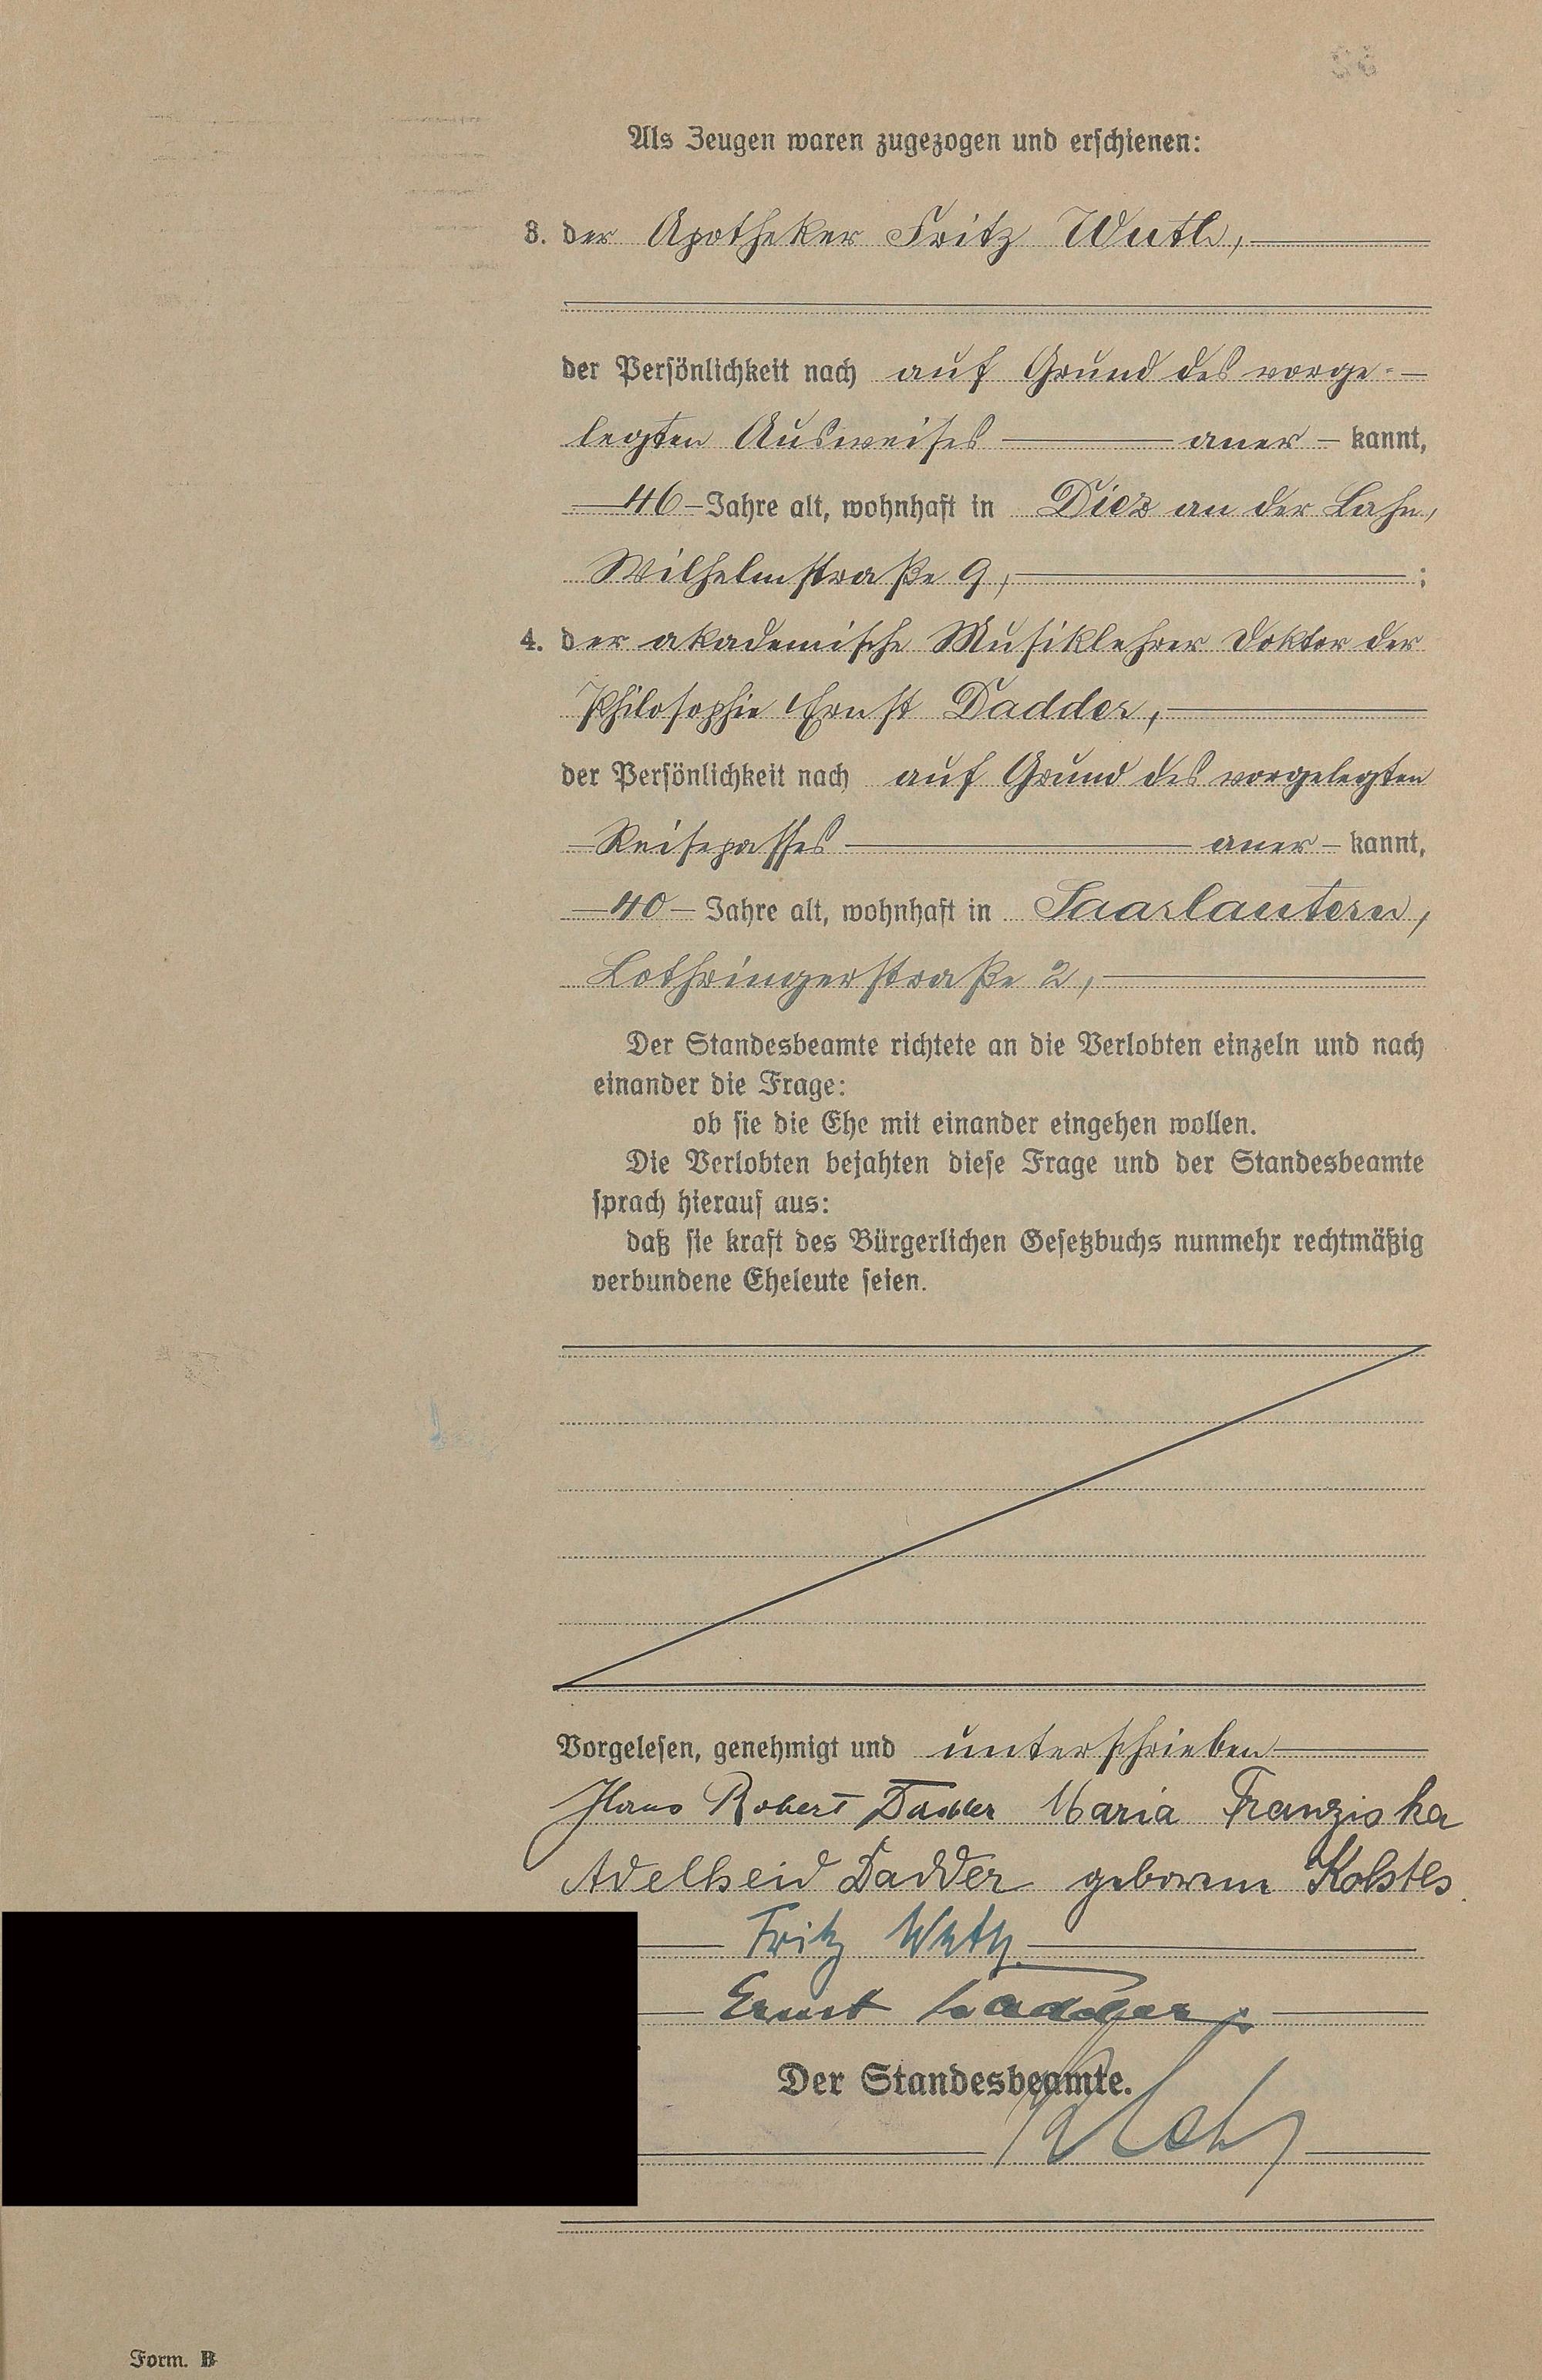 Als Zeugen waren zugezogen und erschienen:
3. der Apotheker Fritz Wuth,
der Persönlichkeit nach auf Grund des vorge-
legten Ausweises aner- kannt,
46 Jahre alt, wohnhaft in Diez an der Lahn,
Wilhelmstraße 9, ;
4. der akademische Musiklehrer Doktor der
Philosophie Ernst Dadder,
der Persönlichkeit nach auf Grund des vorgelegten
Reisepasses aner- kannt,
40 Jahre alt, wohnhaft in Saarlautern,
Lothringerstraße 2,
Der Standesbeamte richtete an die Verlobten einzeln und nach
einander die Frage:
ob sie die Ehe mit einander eingehen wollen.
Die Verlobten bejahten diese Frage und der Standesbeamte
sprach hierauf aus:
daß sie kraft des Bürgerlichen Gesetzbuchs nunmehr rechtmäßig
verbundene Eheleute seien.
Vorgelesen, genehmigt und unterschrieben
Hans Robert Dadder Maria Franziska
Adelheid Dadder geborene
Fritz Wuth
Ernst Dadder
Der Standesbeamte.
Form. B